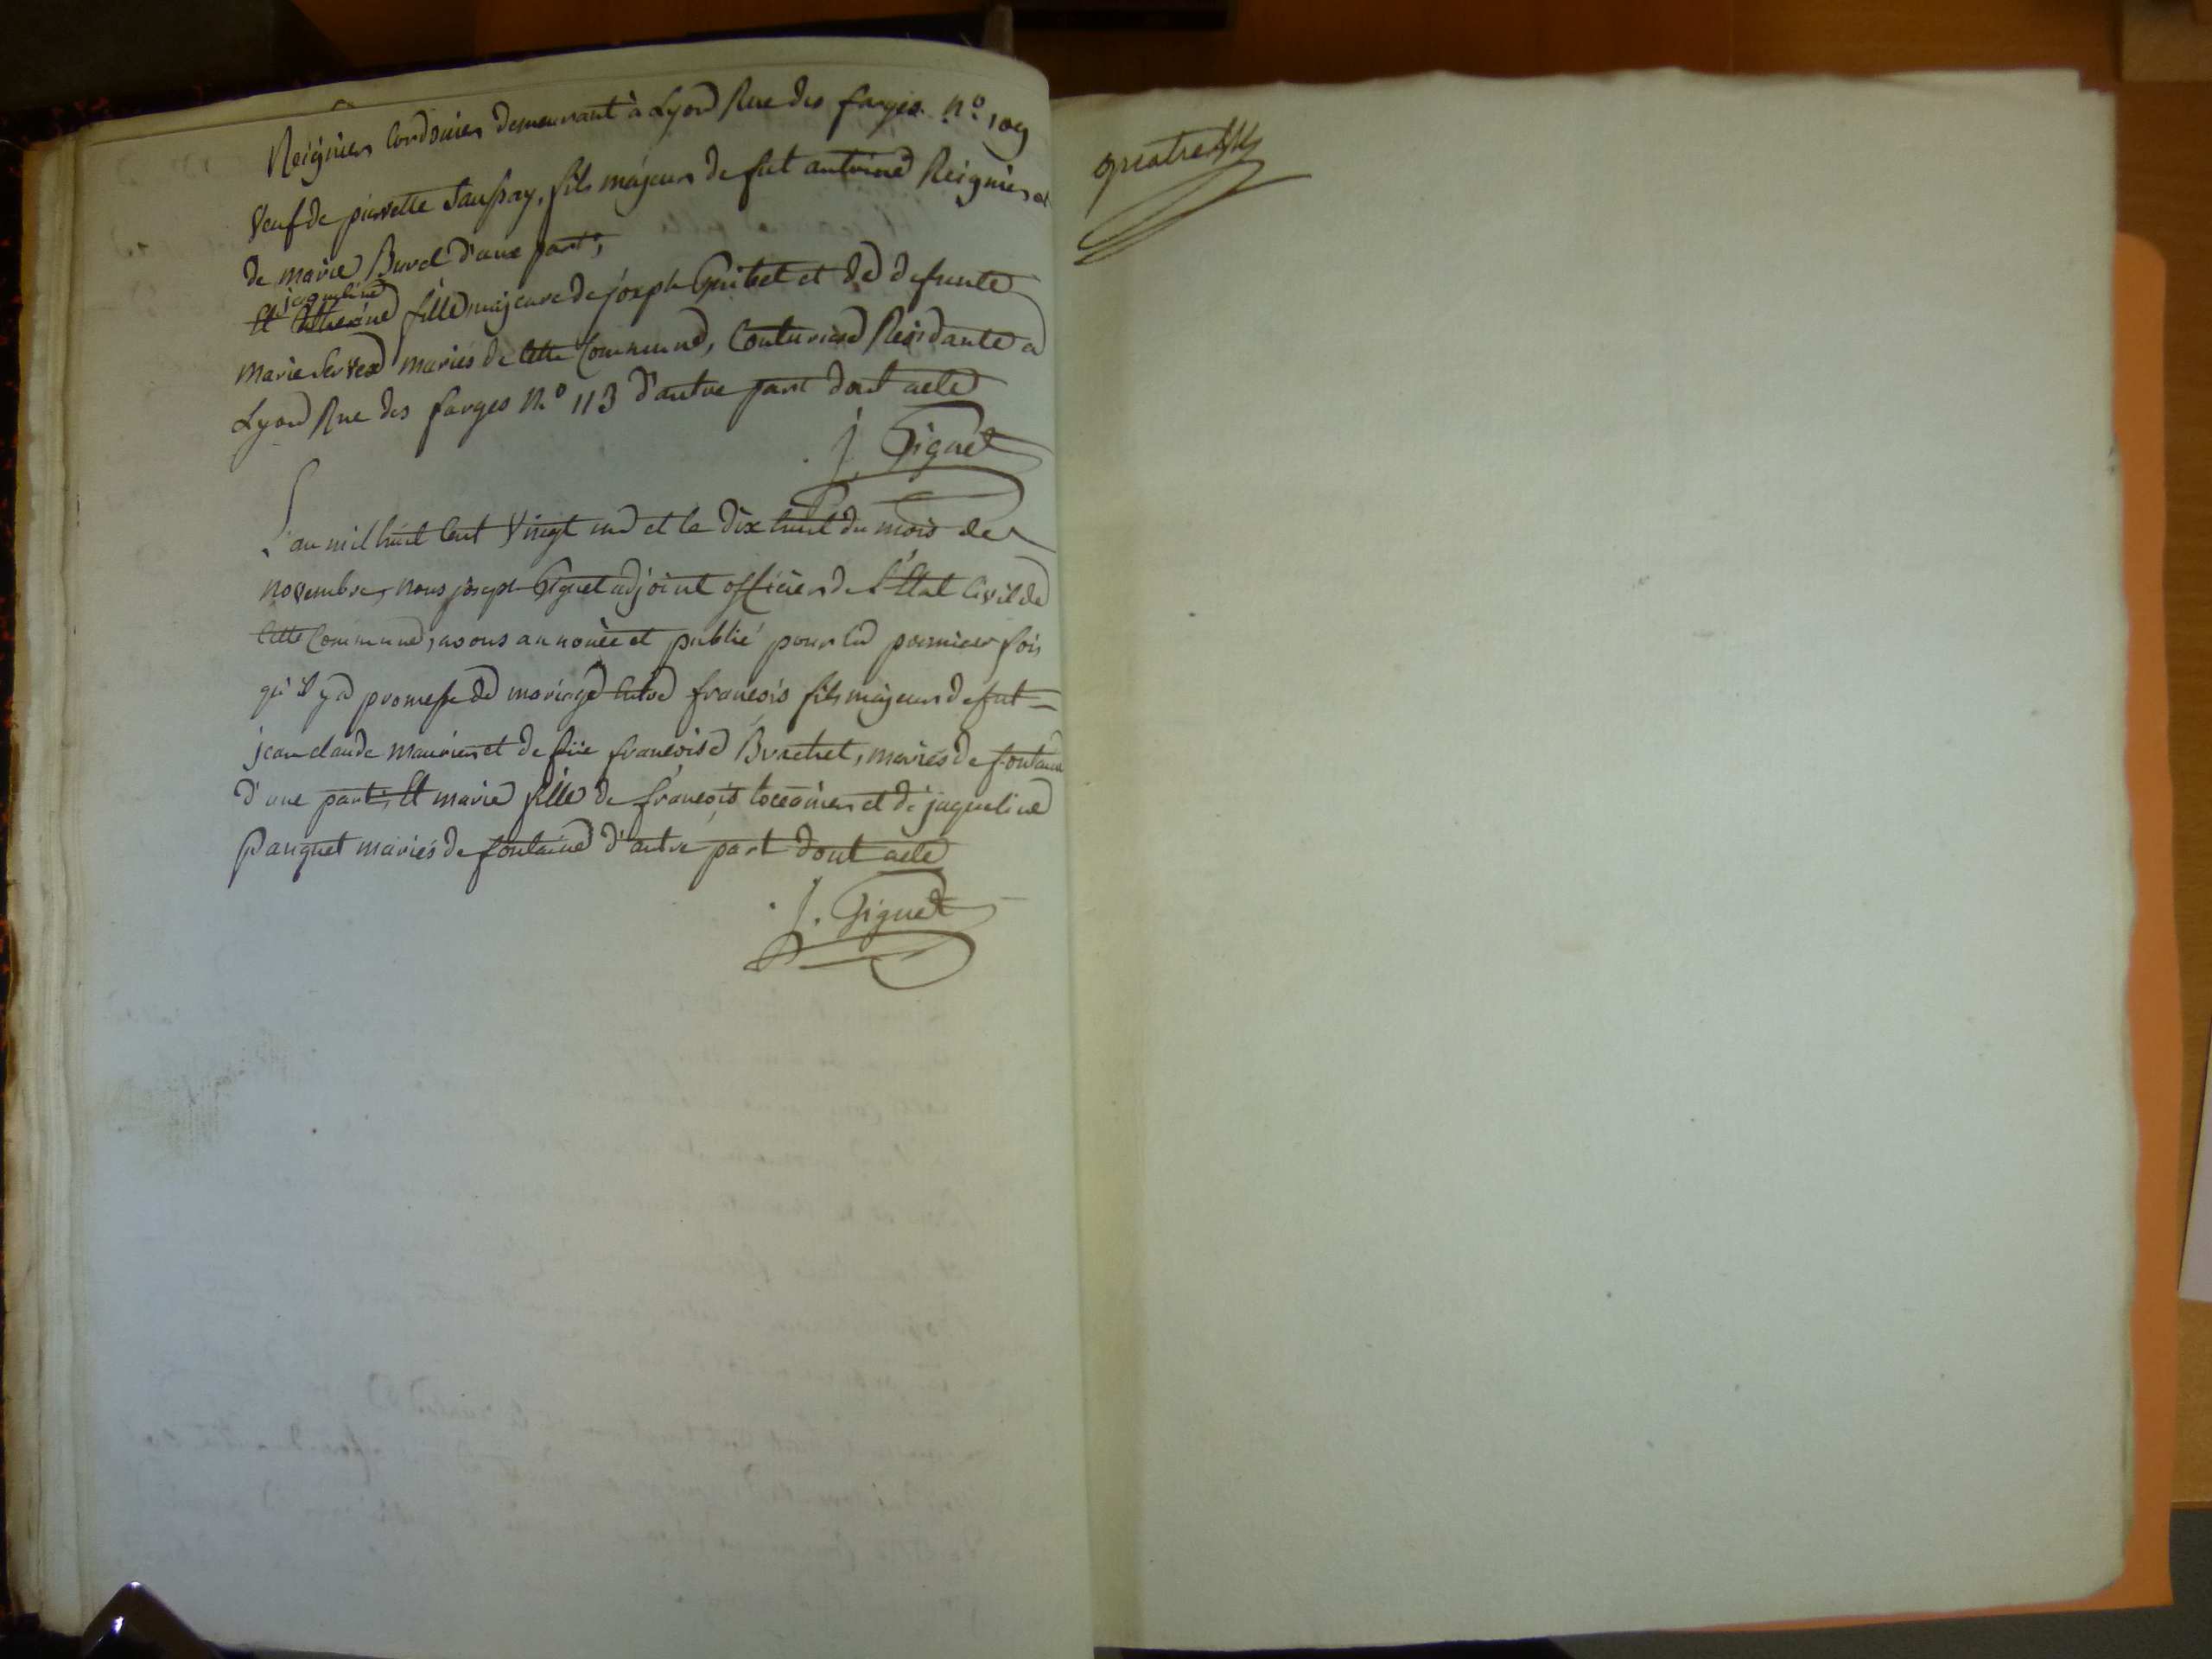 Reignier Cordonier demeurant à Lyon Rue des farges n.º 109
Veuf de pierrette Saussay, fils majeur de fut antoine Reignier et
de marie Burel d'une part,
jaqueline
Et Catherine fille majeure de joseph Guibet et de defunte
marie Servea mariés de Cette Commune, Couturiere Residante a
Lyon Rue des farges N.º 113 d'autre part dont acte
j. Giguet
L'an mil huit Cent Vingt un et le dix huit du mois de
novembre, nous joseph Giguet adjoint officier de L'Etat Civil de
Cette Commune, avons annoncé et publié pour la premier fois
qu'il y a promesse de mariage Entre françois fils majeur de fut
jean claude maurier et de füe françoise Brachet, mariés de fontaine
d'une part, Et marie fille de françois et de jaqueline
Panguet mariés de fontaine d'autre part dont acte
J. Giguet
quatre